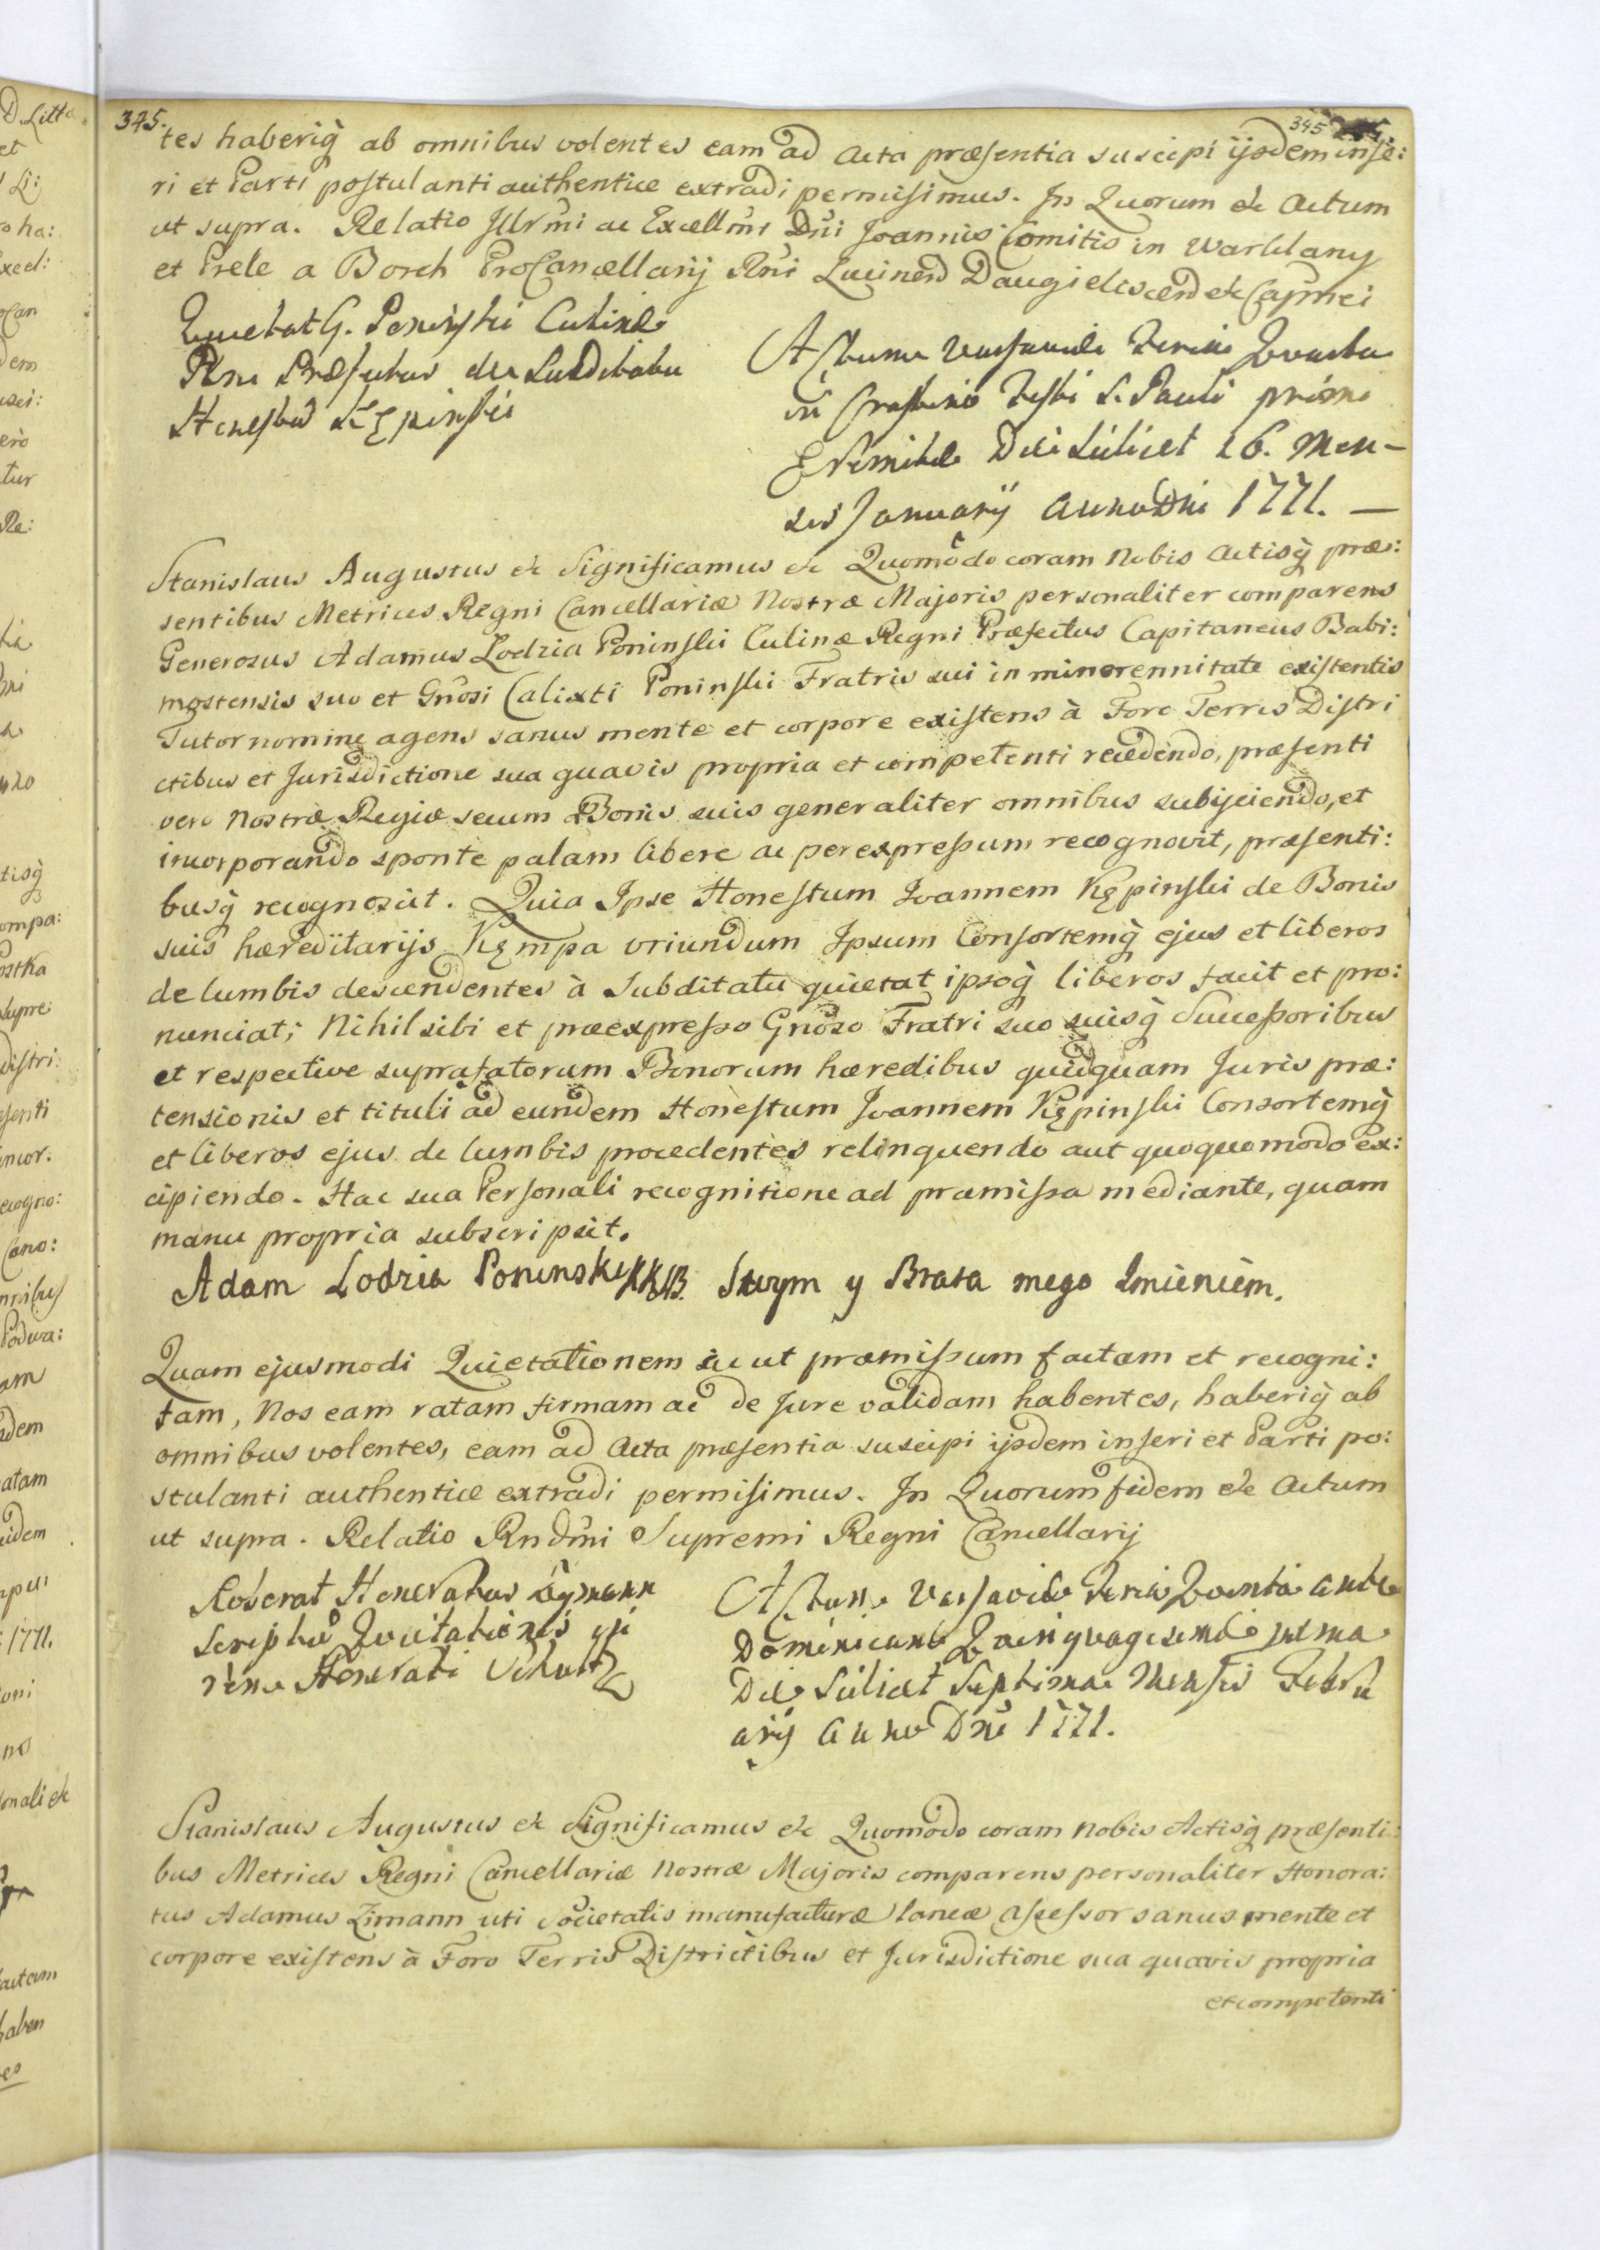 345.
345
tes haberiq̀ ab omnibus volentes eam ad Acta præsentia suscipi ijsdem inse:
ri et Parti postulanti authentice extradi permisimus. In Quorum &c Actum
ut supra. Relatio Illrmi ac Excellmi Dni Joannis Comitis in Warkland
et Prele a Borch ProCancellarij Rni Lucinen Daugielis cen &c Capnei
Quietat G. Poninski Culinæ
Rni Præfectus de Subditatu
Honestum Kępinski
Actum Varsaviæ Feria Quarta
in Crastino Festi S. Pauli primi
Eremitæ Die Scilicet 16. Men-
sis January Anno Dni 1771. —
Stanislaus Augustus &c Significamus &c Quomodo coram Nobis Actisq̀ præ:
sentibus Metrices Regni Cancellariæ Nostræ Majoris personaliter comparens
Generosus Adamus Lodzia Poninski Culinæ Regni Præfectus Capitaneus Babi:
mostensis suo et Gnosi Calixti Poninski Fratris sui in minorennitate existentis
Tutor nomine agens sanus mente et corpore existens à Foro Terris Distri
ctibus et Jurisdictione sua quavis propria et competenti recedendo, præsenti
vero Nostræ Regiæ secum Bonis suis generaliter omnibus subijciendo, et
incorporando sponte palam libere ac per expressum recognovit, præsenti:
busq̀ recognoscit. Quia Ipse Honestum Joannem Kępinski de Bonis
suis hæreditarijs Kępa oriundum Ipsum Consortemq̀ ejus et liberos
de lumbis descendentes à Subditatu quietat ipsoq̀ liberos facit et pro:
nunciat; Nihil sibi et præexpresso Gnoso Fratri suo suisq̀ Successoribus
et respective suprafatorum Bonorum hæredibus quidquam Juris præ:
tensionis et tituli ad eundem Honestum Joannem Kępinski Consortemq̀
et liberos ejus de lumbis procedentes relinquendo aut quoquomodo ex:
cipiendo. Hac sua Personali recognitione ad præmissa mediante, quam
manu propria subscripsit.
Adam Lodzia Poninski KKB. Swym y Brata mego Imieniem.
Quam ejusmodi Quietationem sic ut præmissum factam et recogni:
tam, Nos eam ratam firmam ac de Jure validam habentes, haberiq̀ ab
omnibus volentes, eam ad Acta præsentia suscipi ijsdem inseri et Parti po:
stulanti authentice extradi permisimus. In Quorum fidem &c Actum
ut supra. Relatio Rndmi Supremi Regni Cancellarij
Roborat Honoratus Cymann
Scriptum Quietationis
Honorati Schultz
Actum Varsaviæ Feria Quinta ante
Dominicam Quinquagesimæ proxima
Die Scilicet Septima Mensis Febru
arij Anno Dni 1771.
Stanislaus Augustus &c Significamus &c Quomodo coram Nobis Actisq̀ præsenti:
bus Metrices Regni Cancellariæ Nostræ Majoris comparens personaliter Honora:
tus Adamus Zimann uti Societatis manufacturæ laneæ Assessor sanus mente et
corpore existens à Foro Terris Districtibus et Jurisdictione sua quavis propria
et competenti